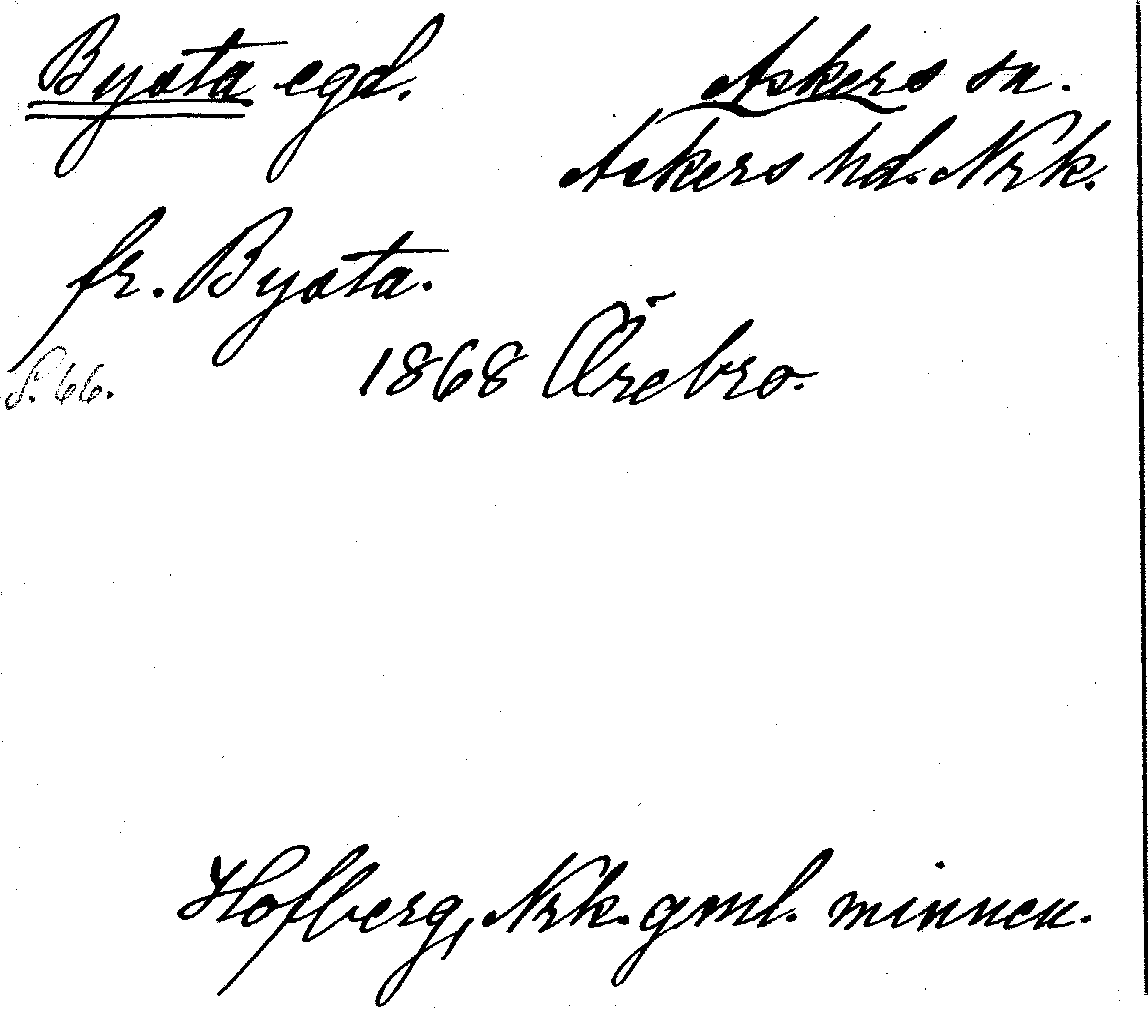 Bysta egd. Askers sn.
Askers hd. Nrk.
fr. Bysta.
S. 66. 1868 Örebro.
Hofberg, Nrk. gml. minnen.